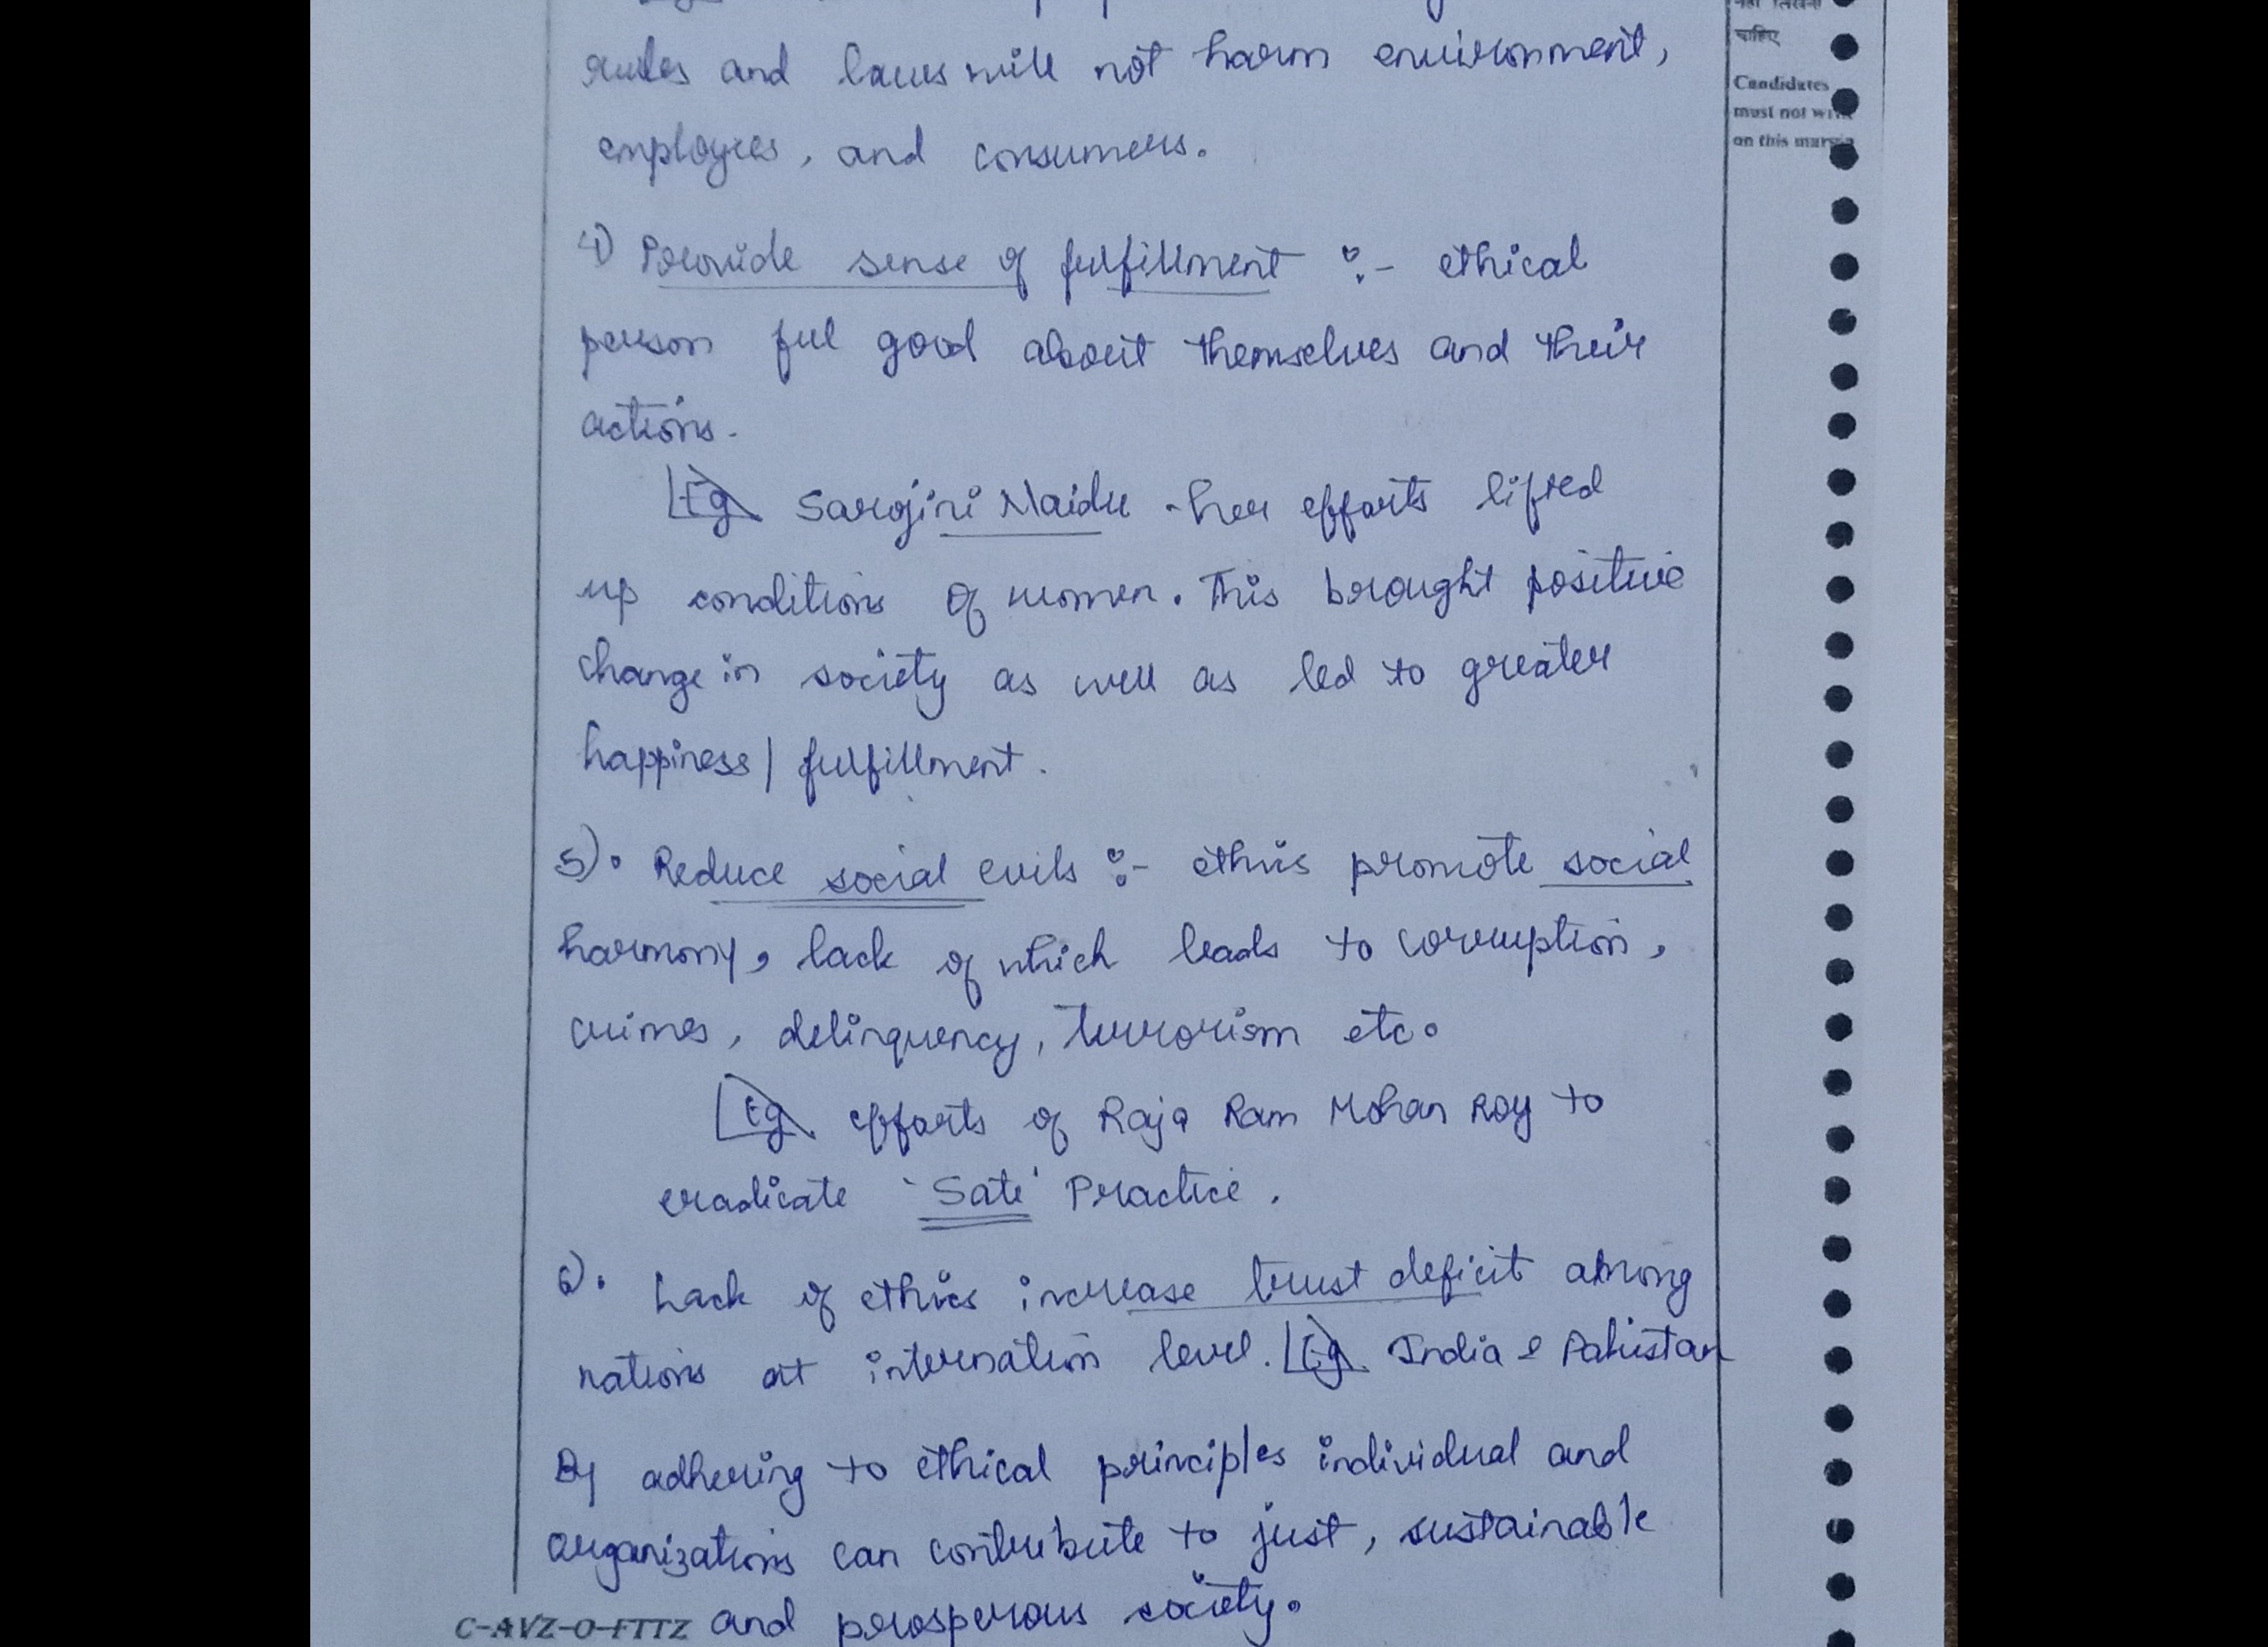 rules and laws will not harm environment,
employees, and consumers.
4) Provide sense of fulfillment :- ethical
person feel good about themselves and their
actions.
Eg Sarojini Naidu - her efforts lifted
up conditions of women. This brought positive
change in society as well as led to greater
happiness/ fulfillment.
5). Reduce social evils :- ethics promote social
harmony, lack of which leads to corruption,
crimes, delinquency, terrorism etc.
Eg efforts of Raja Ram Mohan Roy to
eradicate 'Sate' Practice.
6). Lack of ethics increase trust deficit among
nations at internation level. Eg India & Pakistan
By adhering to ethical principles individual and
organizations can contribute to just, sustainable
and prosperous society.
C-AVZ-O-FTTZ
चाहिए
Candidates
must not
on this